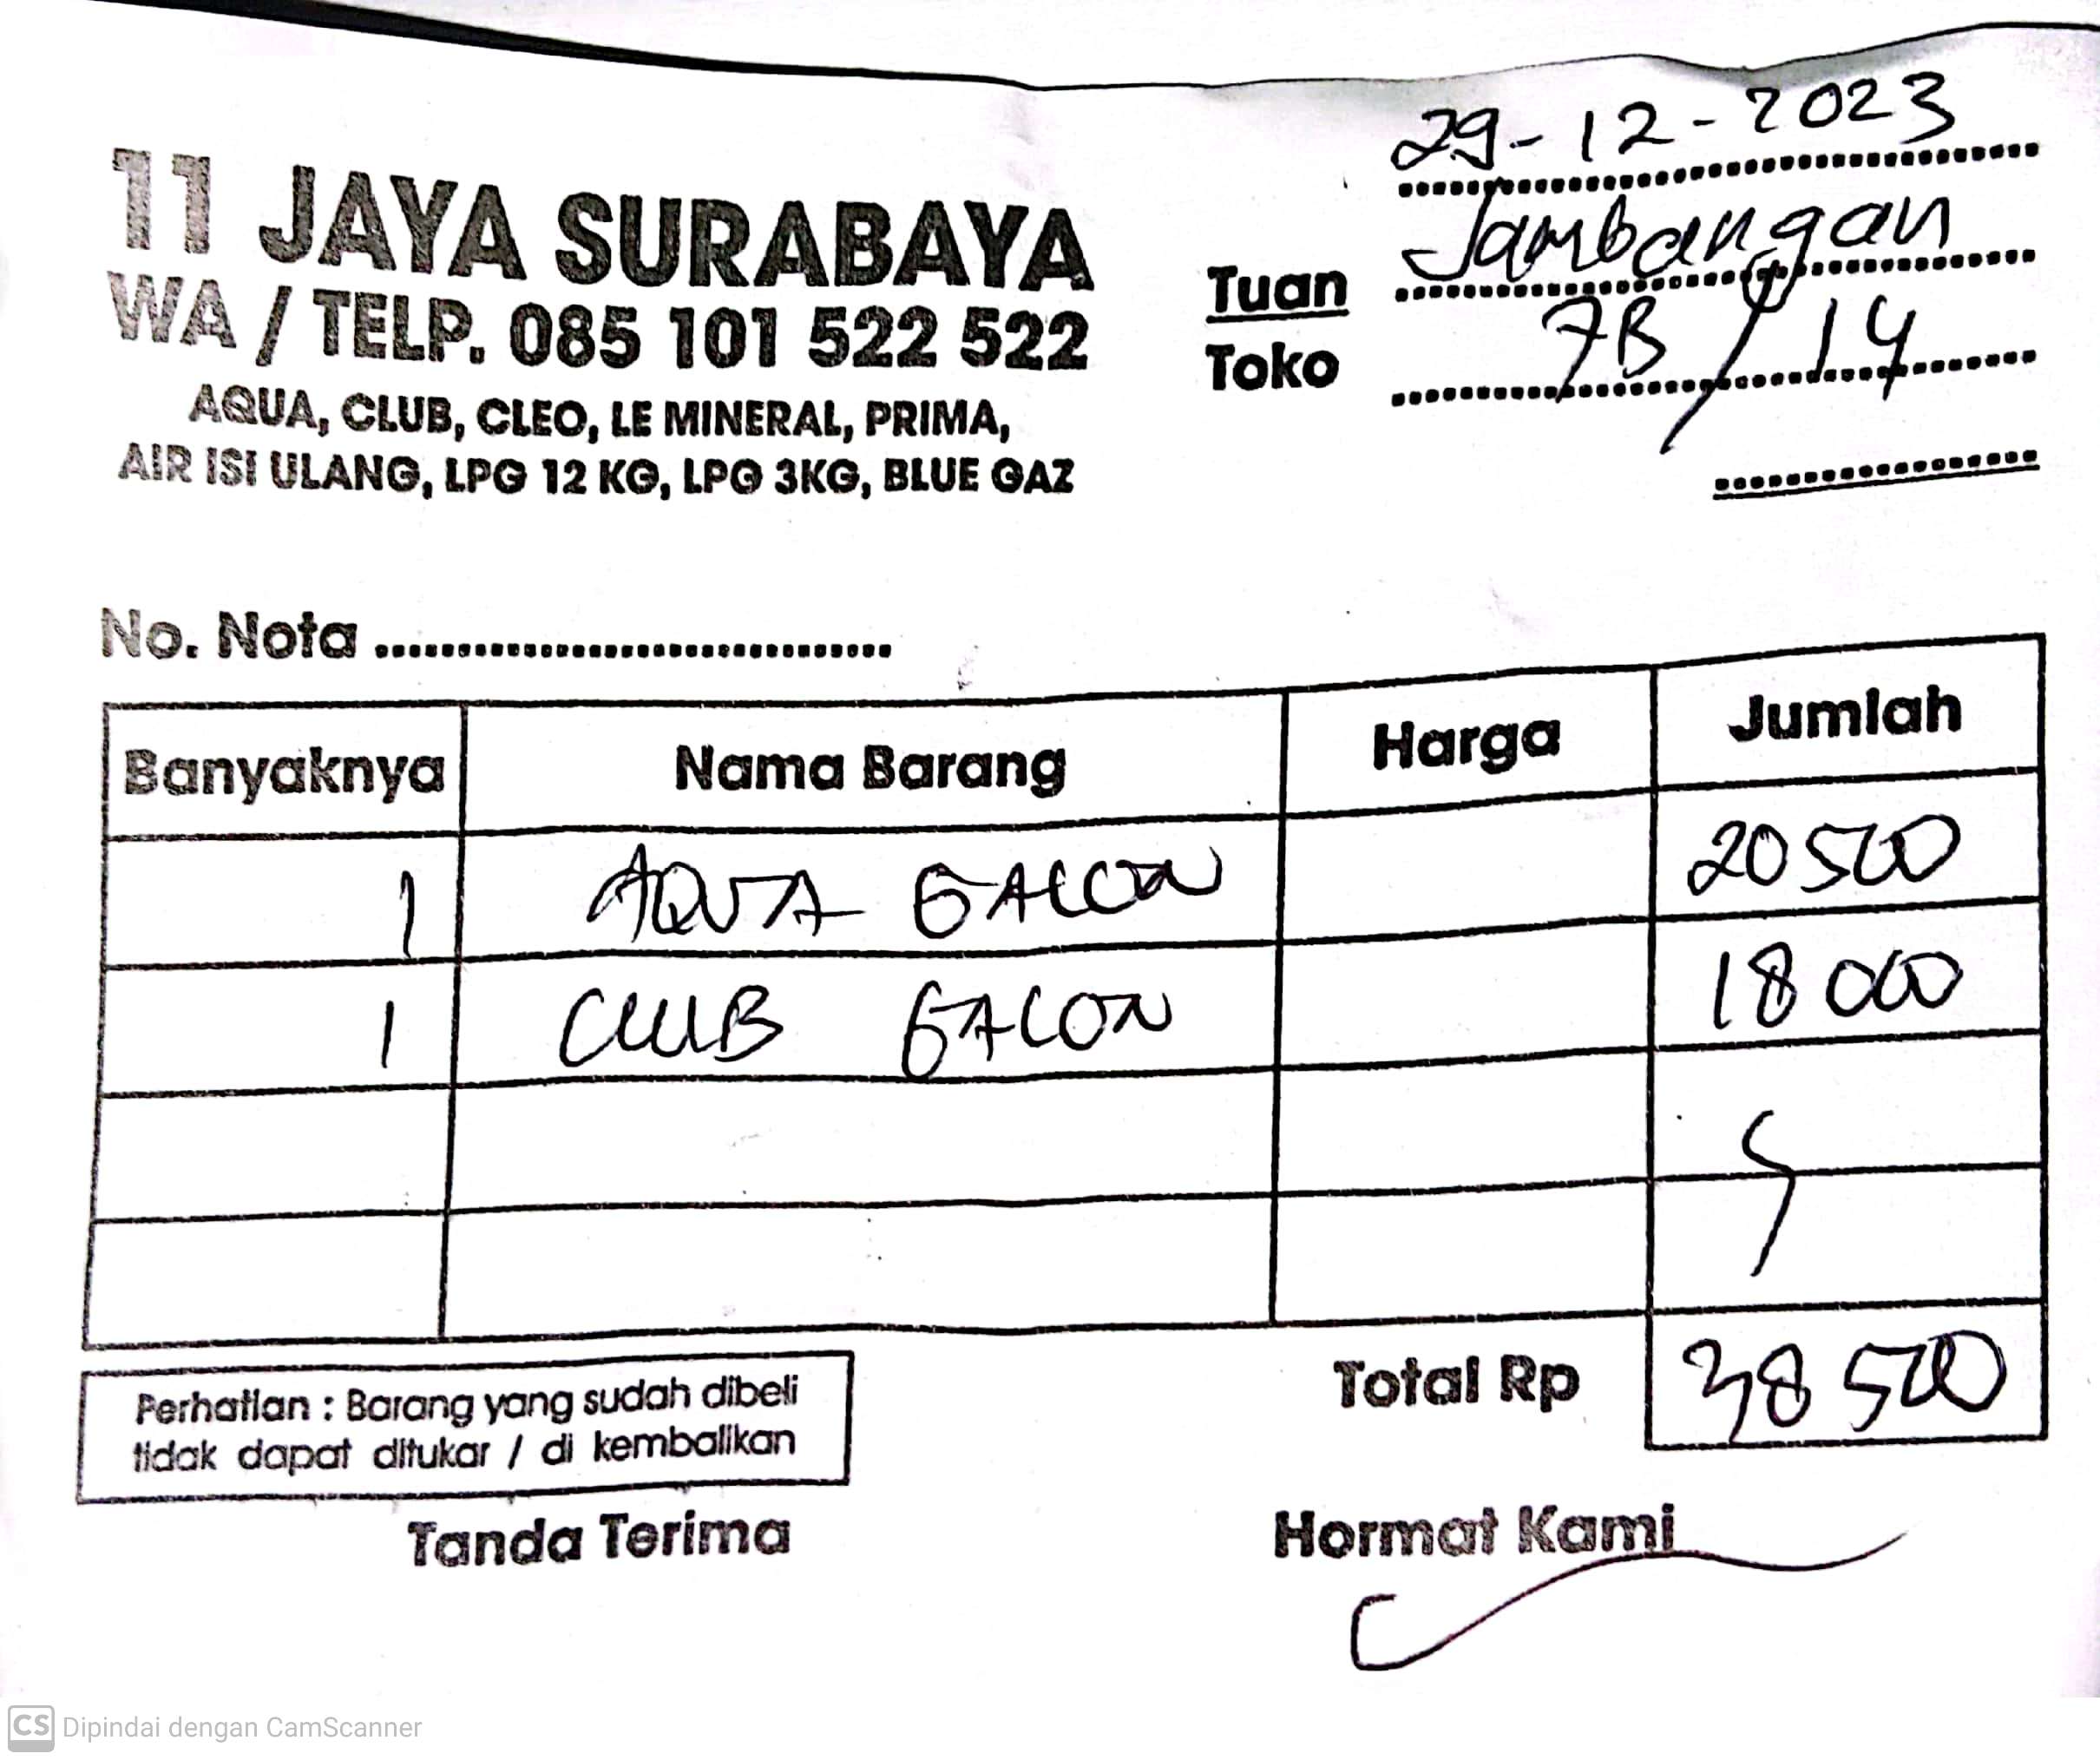 29-12-2023
11 JAYA SURABAYA
WA / TELP. 085 101 522 522
AQUA, CLUB, CLEO, LE MINERAL, PRIMA,
AIR ISI ULANG, LPG 12 KG, LPG 3KG, BLUE GAZ
Tuan Jambangan
Toko 7B / 14
No. Nota
Banyaknya Nama Barang Harga Jumlah
1 AQUA GALON 20 500
1 CLUB GALON 18 000
Total Rp 38 500
Perhatian : Barang yang sudah dibeli
tidak dapat ditukar / di kembalikan
Tanda Terima Hormat Kami
CS Dipindai dengan CamScanner